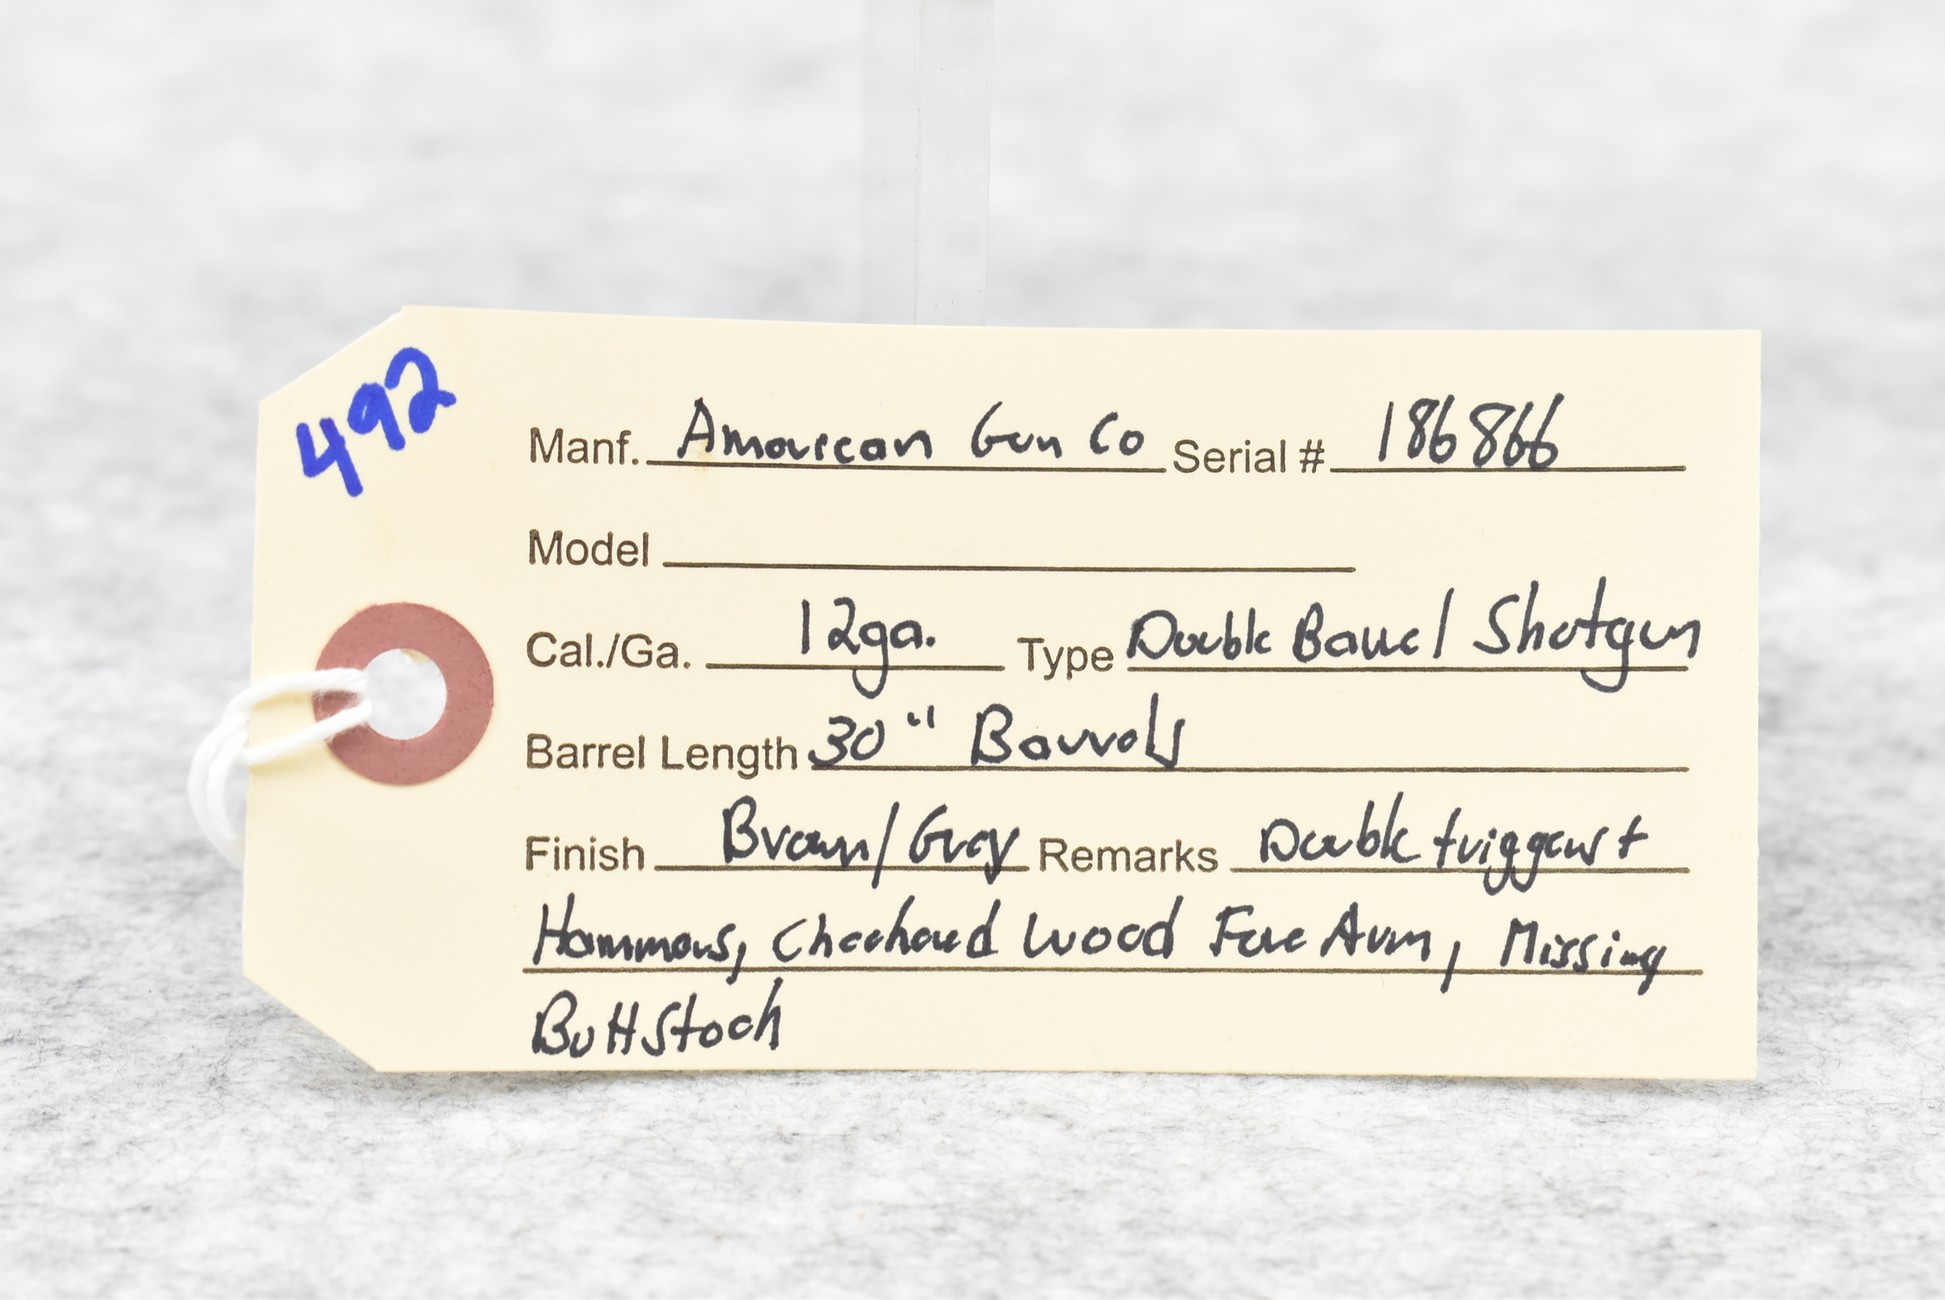 492
Manf. American Gun Co Serial # 186866
Model
Cal./Ga. 12ga. Type Double Barrel Shotgun
Barrel Length 30" Barrels
Finish Brown/Grey Remarks Double triggers +
Hammers, Checkered Wood Fore Arm, Missing
Buttstock